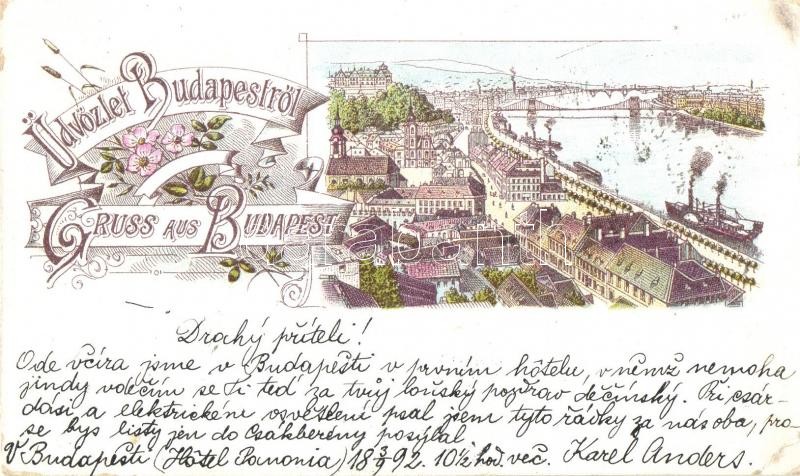 Üdvözlet Budapestről
GRUSS AUS BUDAPEST
Drahý příteli!
Ode včíra jsme v Budapěšti v prvním hôtelu, v němž nemoha
jindy vděčím se Ti teď za tvůj loňský pozdrav děčínský. Při csár-
dási a elektrickém osvětlení psal jsem tyto řádky za nás oba, pro-
se bys listy jen do Csákberény posýlal.
V Budapěšti (Hôtel Panonia) 18 3/9 92. 10½ hod. več. Karel Anders.